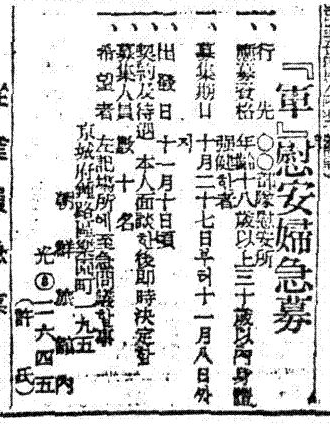 『軍』慰安婦急募
一、行先 ○○部隊慰安所
一、應募資格 年齡十八歲以上三十歲以內身體强健한者
一、募集期日 十月二十七日부터十一月八日까지
一、出發日 十一月十日頃
一、契約及待遇 本人面談한後卽時決定함
一、募集人員 數十名
一、希望者 左記場所에至急問議할事
京城府鍾路區樂園町一九五
朝鮮旅館內
光③二六四五
(許氏)